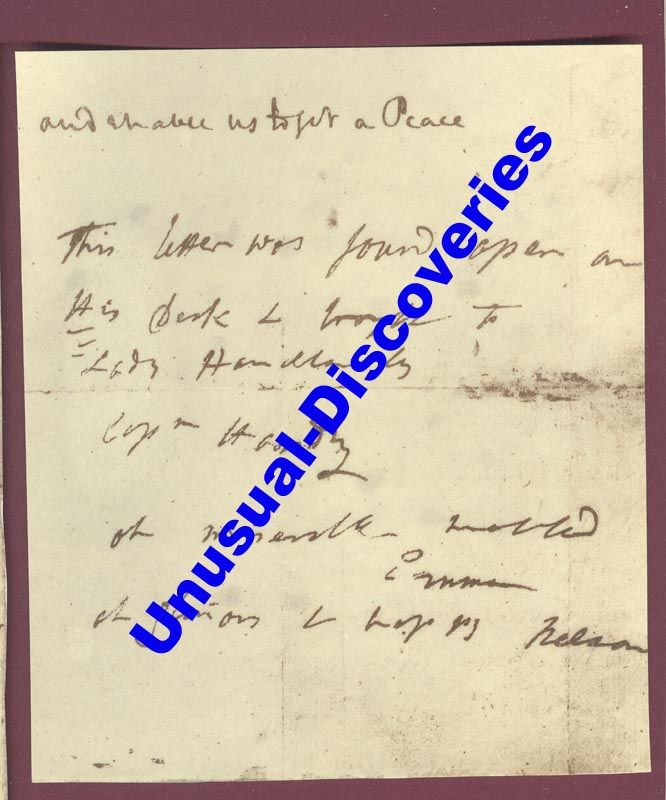 and enable us to get a Peace
This letter was found open on
His Desk & brought to
Lady Hamilton by
Capn Hardy
oh miserable wretched
Emma
oh glorious & happy Nelson
Unusual-Discoveries